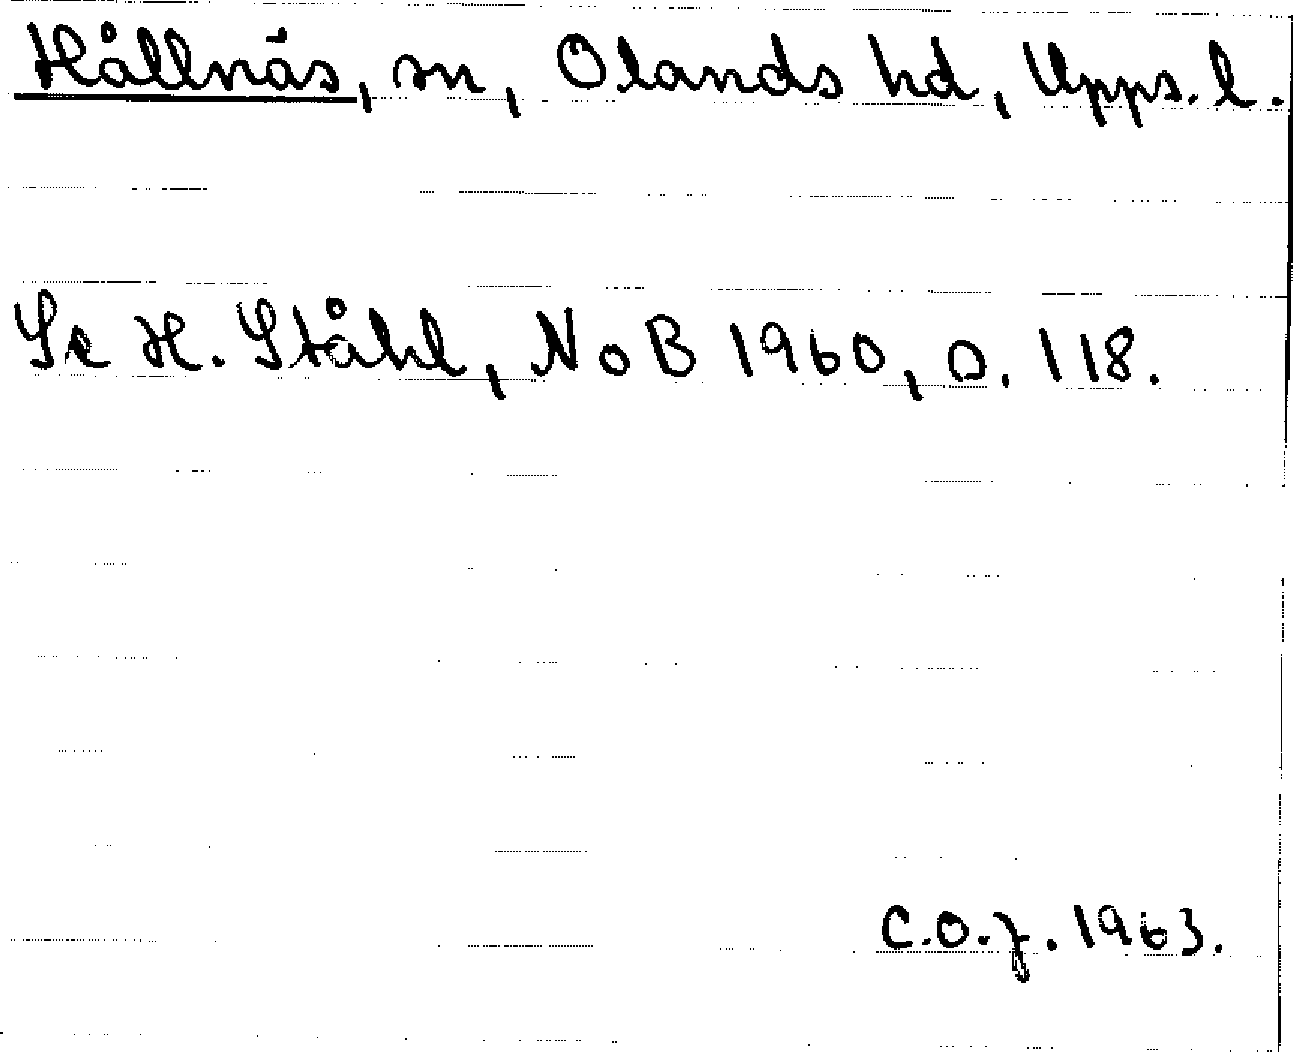 Hållnäs, sn, Olands hd, Upps. l.
Se H. Ståhl, NoB 1960, s. 118.
C.O.f. 1963.